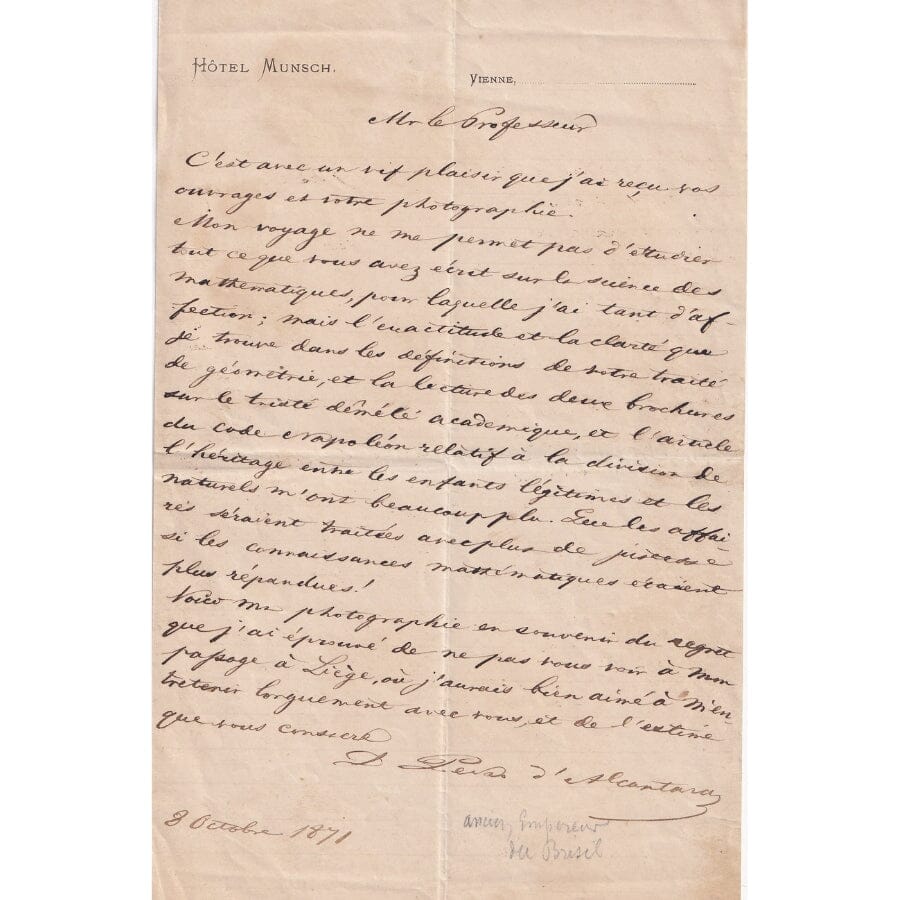 HÔTEL MUNSCH.
VIENNE,
Mr le Professeur
C'est avec un vif plaisir que j'ai reçu vos
ouvrages et votre photographie.
Mon voyage ne me permet pas d'étudier
tout ce que vous avez écrit sur la science des
mathématiques, pour laquelle j'ai tant d'af-
fection; mais l'exactitude et la clarté que
je trouve dans les définitions de votre traité
de géométrie, et la lecture des deux brochures
sur le triste démêlé académique, et l'article
du code Napoléon relatif à la division de
l'héritage entre les enfants légitimes et les
naturels m'ont beaucoup plu. Que les affai-
res seraient traitées avec plus de justesse
si les connaissances mathématiques étaient
plus répandues!
Voici ma photographie en souvenir du regret
que j'ai éprouvé de ne pas vous voir à mon
passage à Liège, où j'aurais bien aimé à m'en-
tretenir longuement avec vous, et de l'estime
que vous consacre
D. Pedro d'Alcantara
8 Octobre 1871
ancien Empereur
du Brésil